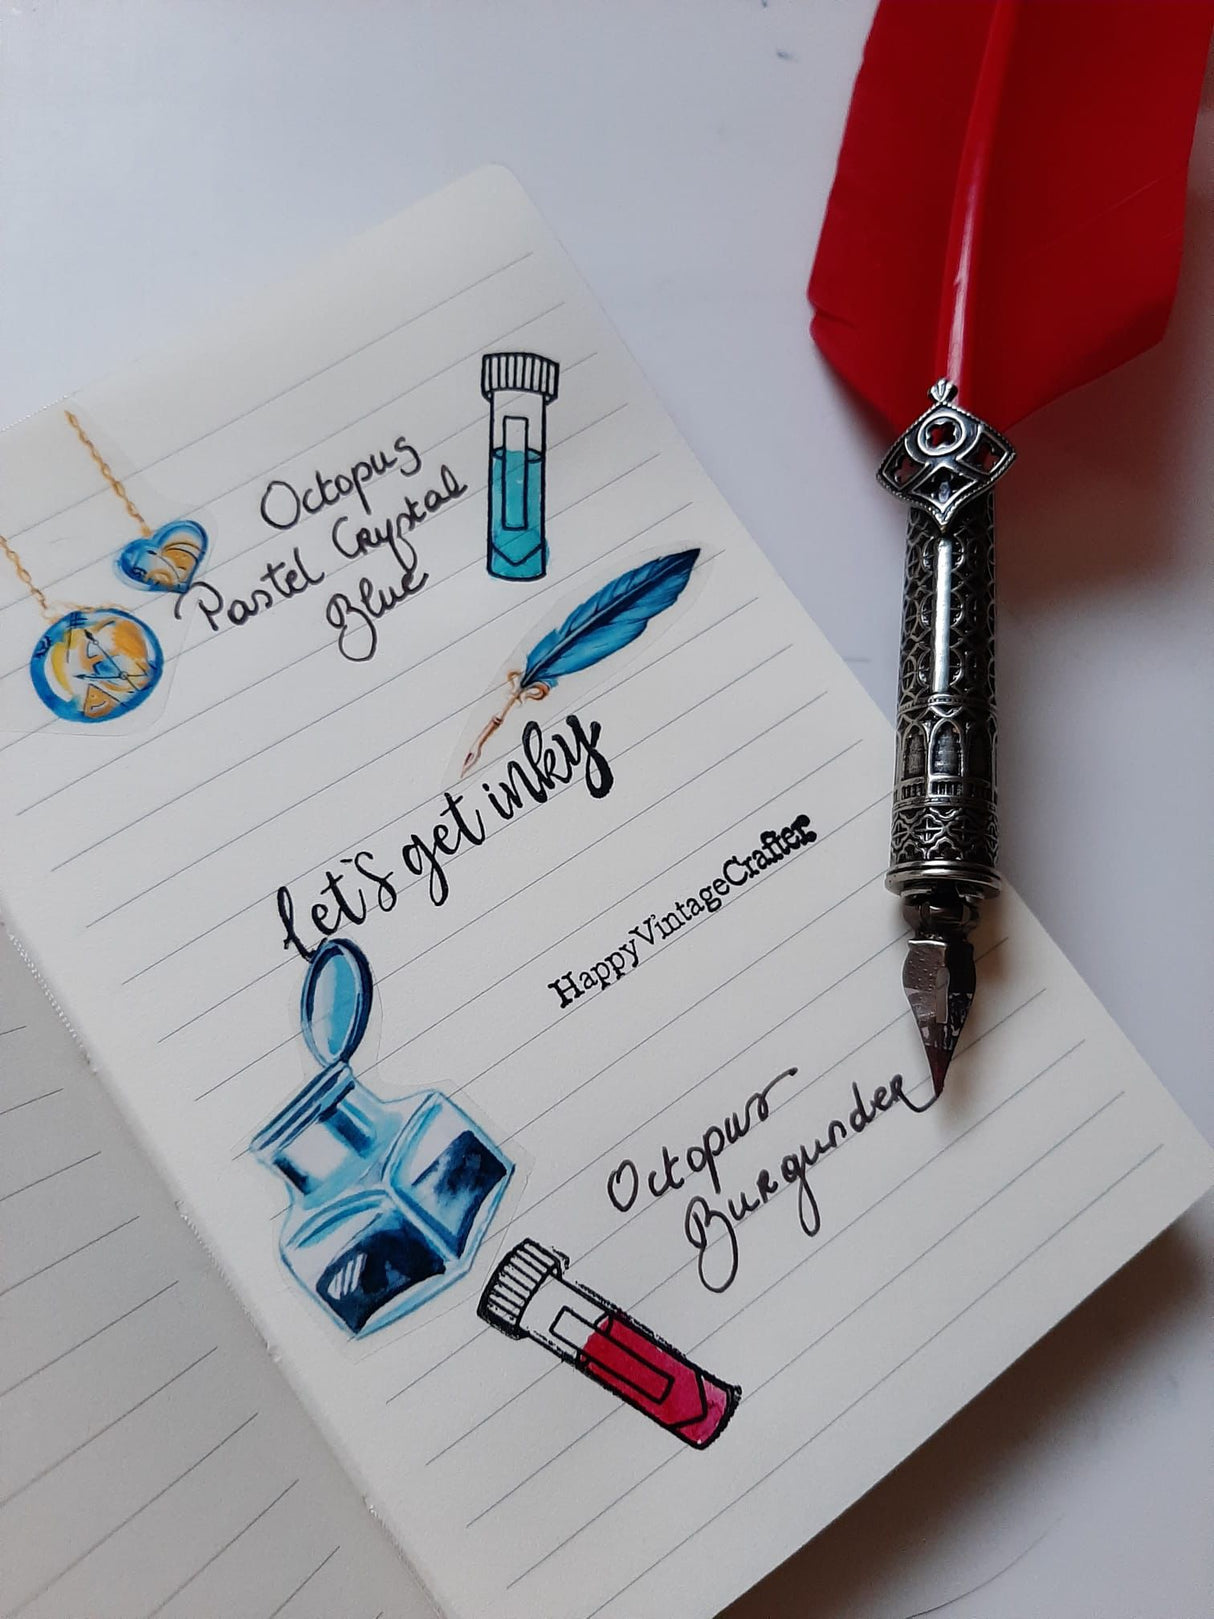 Octopus
Pastel Crystal
Blue
let's get inky
HappyVintageCrafter
Octopus
Burgunder